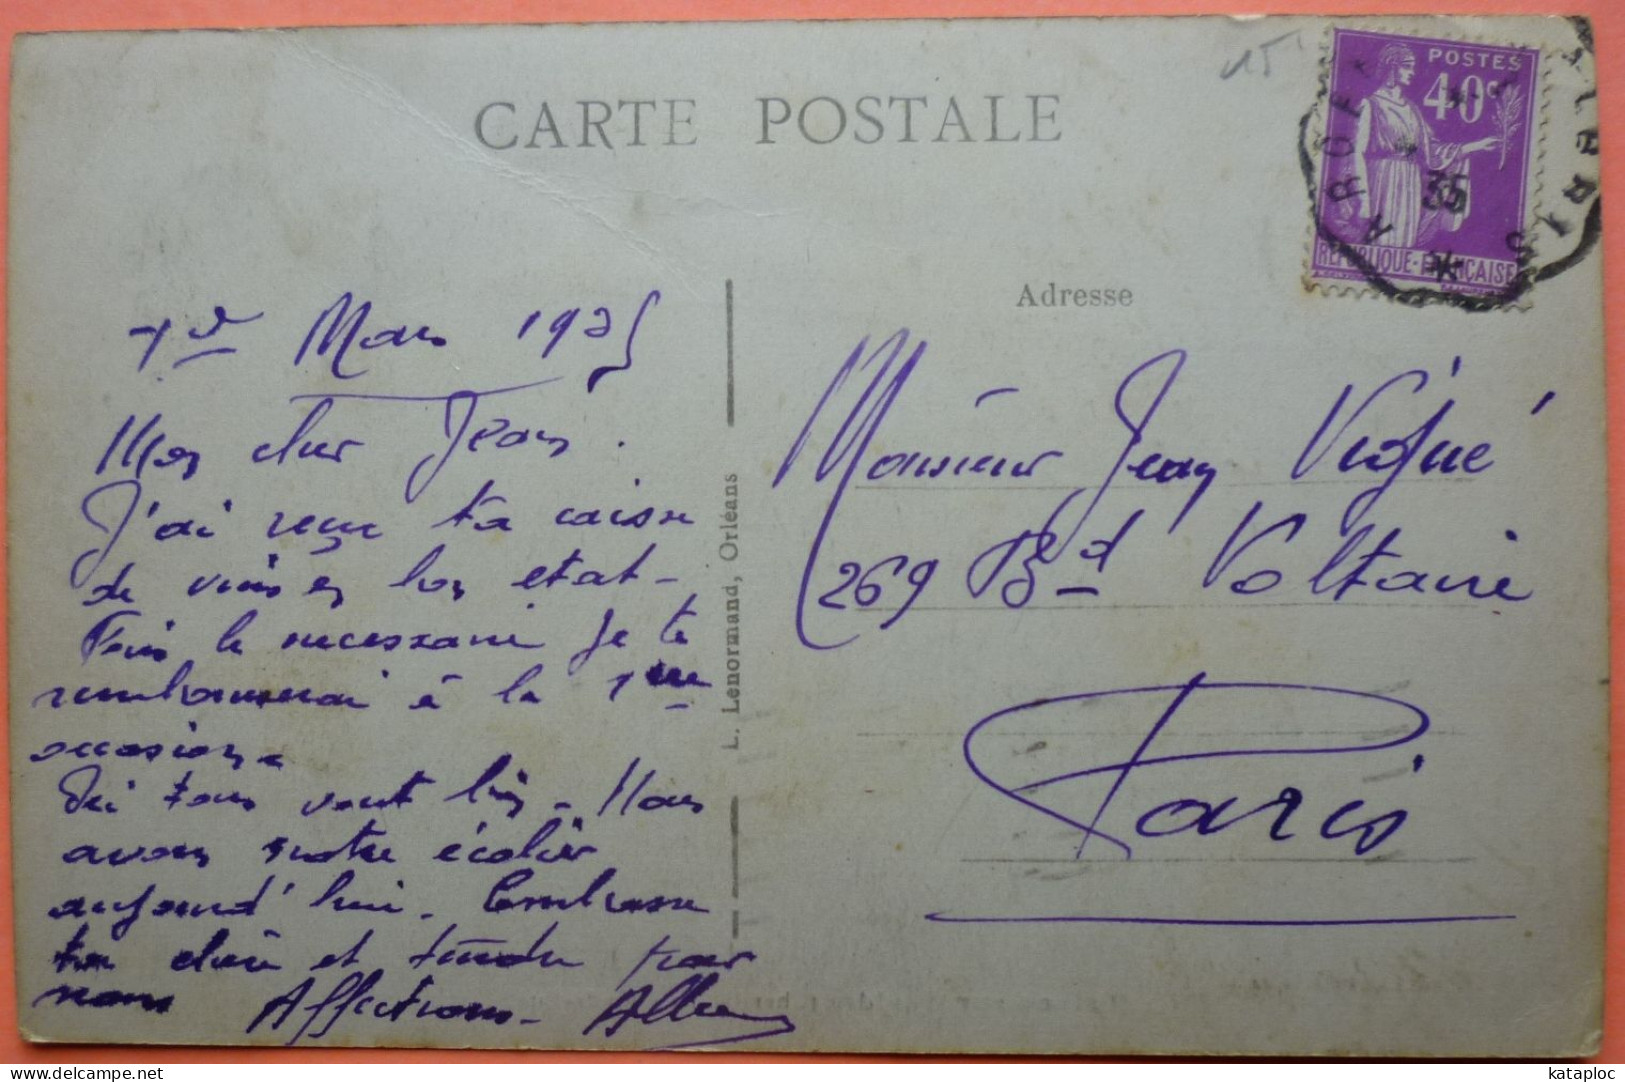 CARTE POSTALE
15
POSTES
40c
35
RÉPUBLIQUE-FRANÇAISE
Adresse
L. Lenormand, Orléans
Mars 1935
Mon cher Jean.
J'ai reçu ta caisse
de vins en bon etat-
Fais le necessaire je te
rembourserai à la 1ère
occasion.
Ici tous vont bien. Nous
avons notre écolier
aujourd'hui. Embrasse
ta chère et tendre pour
nous Affections.
Monsieur Jean
269 Bd Voltaire
Paris
kataploc
delcampe.net